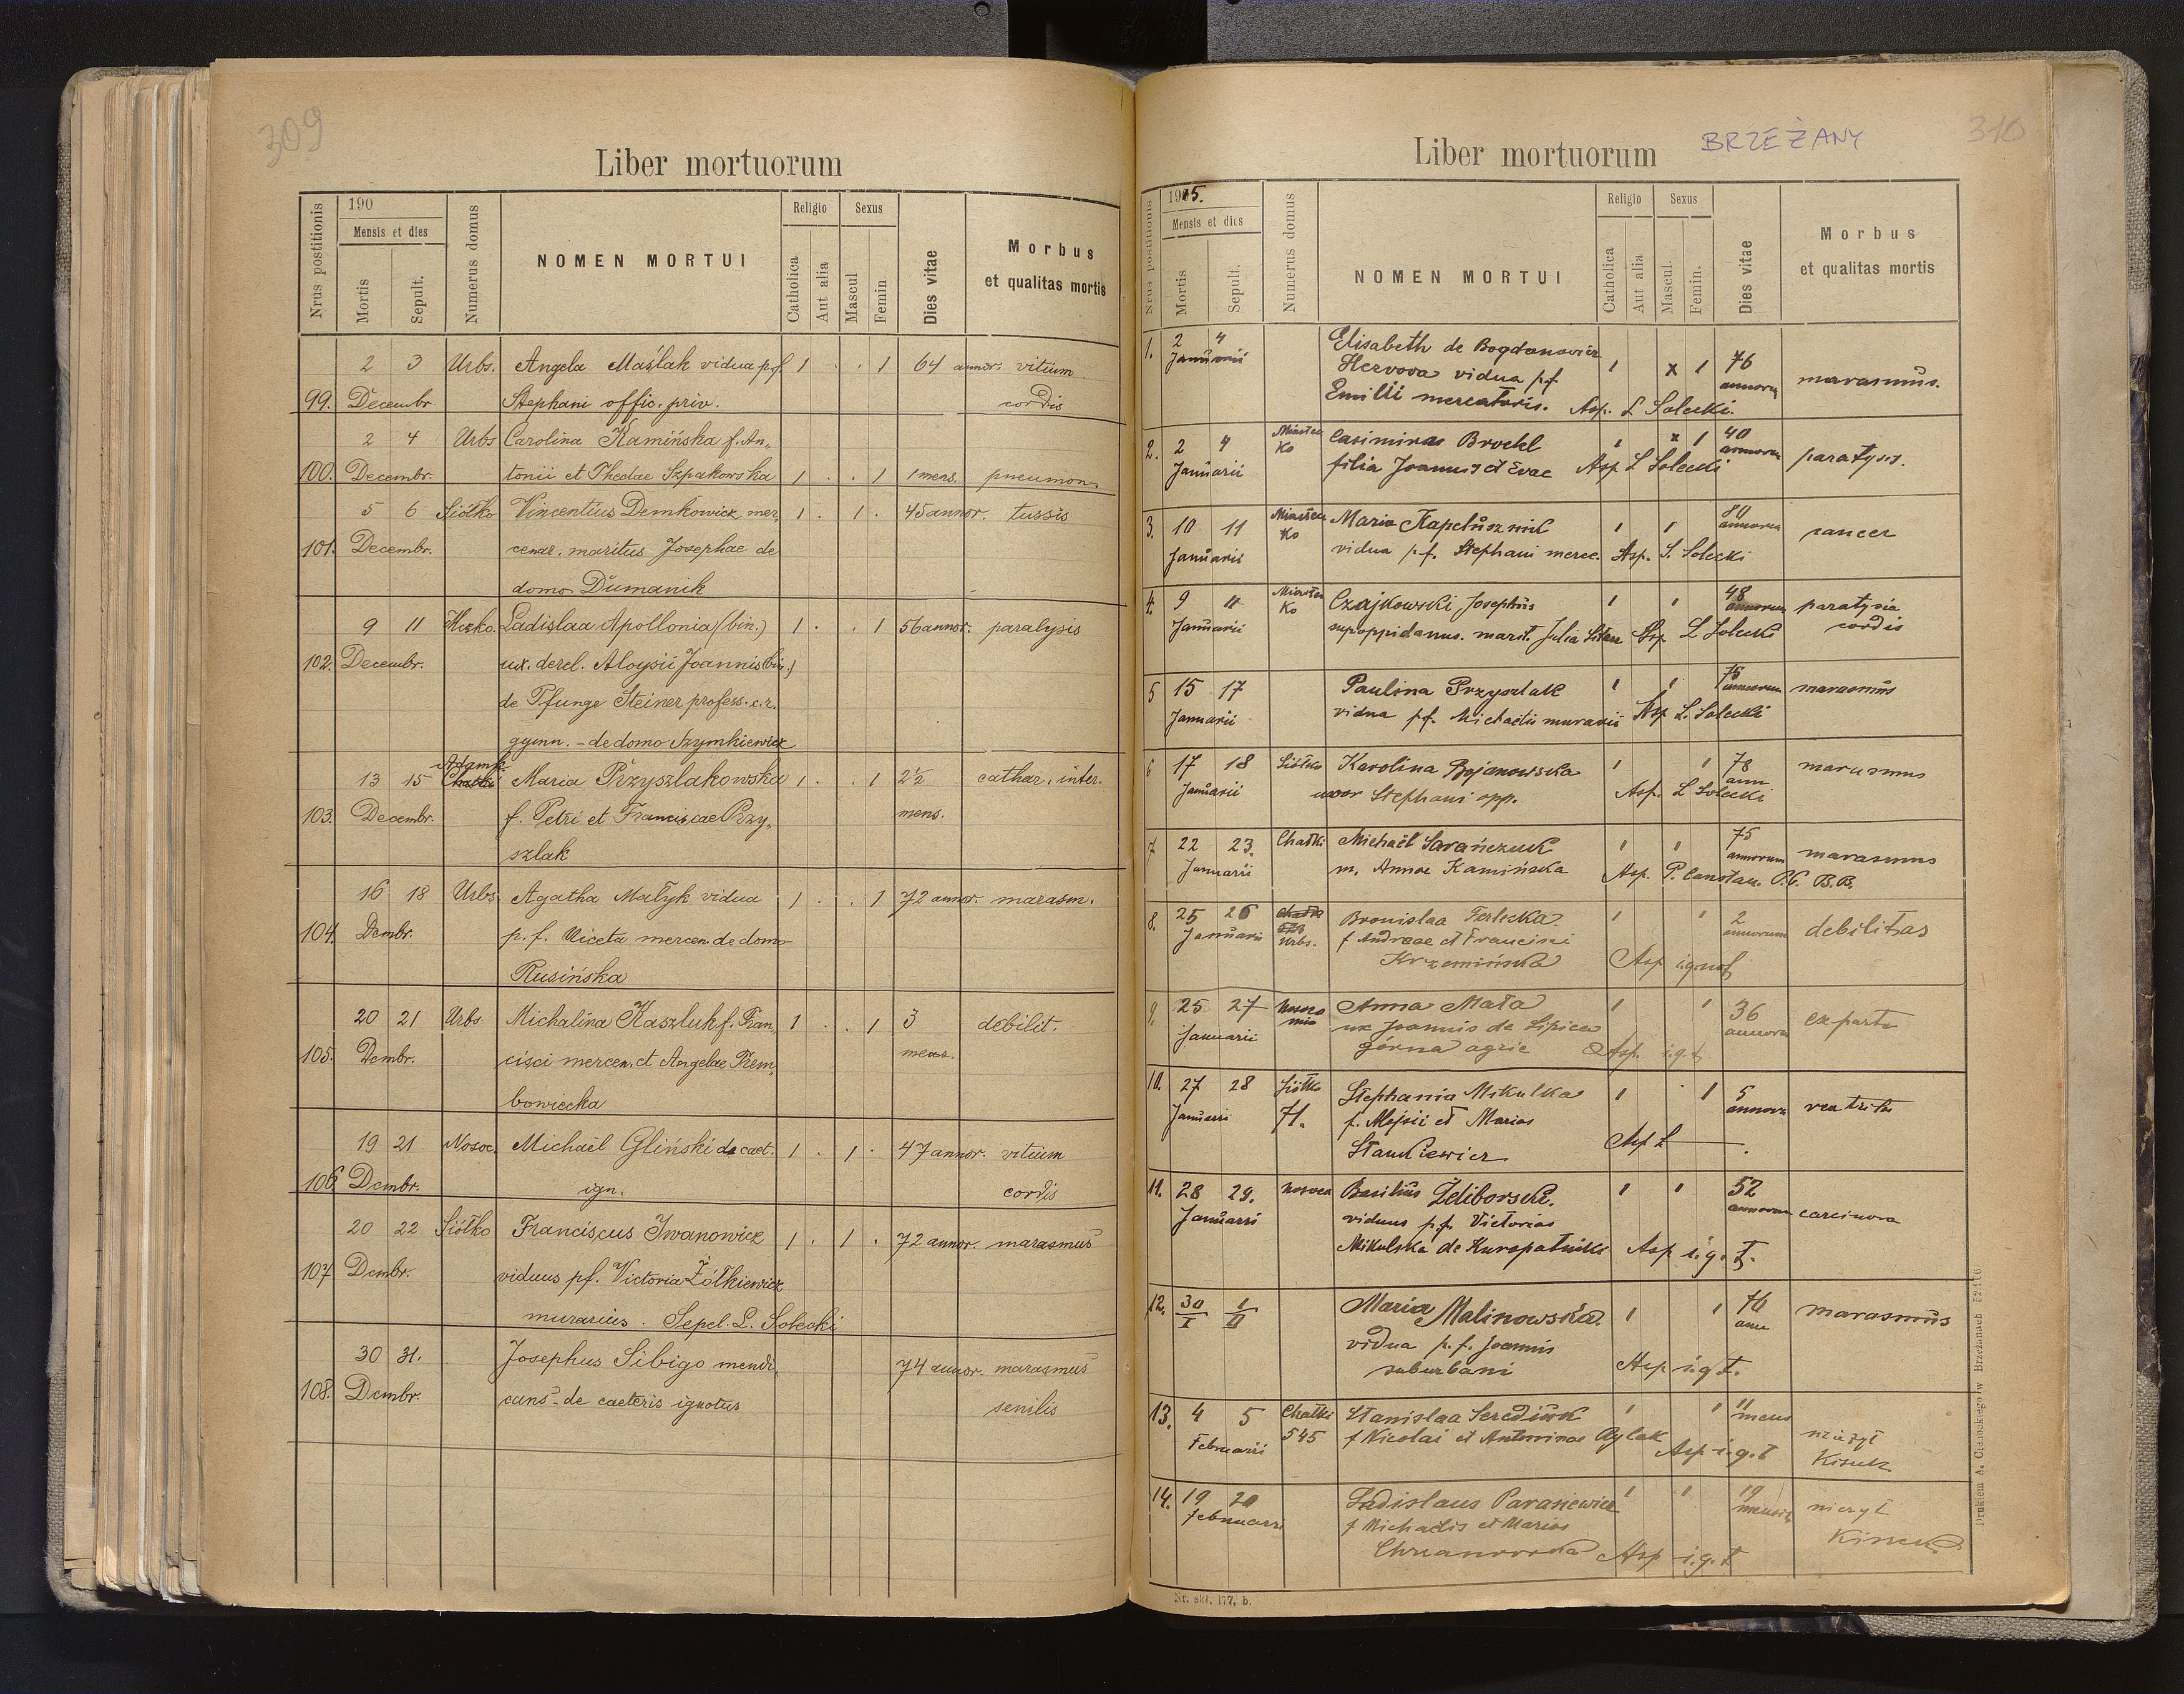 309
Liber mortuorum
Nrus postitionis
190
Mensis et dies
Mortis
Sepult.
Numerus domus
NOMEN MORTUI
Religio
Catholica
Aut alia
Sexus
Mascul
Femin
Dies vitae
Morbus
et qualitas mortis
2 3 Urbs. Angela Maślak vidua p.f. 1 . . 1 64 annor. vitium
99. Decembr. Stephani offic. priv. cordis
2 4 Urbs Carolina Kamińska f. An„
100. Decembr. tonii et Theclae Szpakowska 1 . . 1 1 mens. pneumon.
5 6 Siółko Vincentius Demkowicz mer„ 1 . 1 . 45 annor. tussis
101. Decembr. cenar. maritus Josephae de
domo Dumanik
9 11 Ladislaa Apollonia (bin.) 1 . . 1 56 annor. paralysis
102. Decembr. ux. derel. Aloysii Joannis (bin.)
de Pfunge Steiner profess. c.r.
gymn. - de domo Szymkiewicz
Adamk.
13 15 Chatki Maria Przyszlakowska 1 . . 1 2½ cathar. inter.
103. Decembr. f. Petri et Franciscae Przy„ mens.
szlak
16 18 Urbs Agatha Małyk vidua 1 . . 1 72 annor. marasm.
104. Dcmbr. p. f. Niceta mercen. de domo
Rusińska
20 21 Urbs. Michalina Kaszluk f. Fran„ 1 . . 1 3 debilit.
105. Dcmbr. cisci mercen. et Angelae Trem„ mens.
bowiecka
19 21 Nosoc. Michaël Gliński de caet. 1 . 1 . 47 annor. vitium
106 Dcmbr. ign. cordis
20 22 Siółko Franciscus Iwanowicz 1 . 1 . 72 annor. marasmus
107 Dcmbr. viduus pf. Victoria Żółkiewicz
murarius. Sepel. L. Solecki
30 31. Josephus Sibigo mendi„ 74 annor. marasmus
108. Dcmbr. cans - de caeteris ignotus senilis
310
BRZEŻANY
Liber mortuorum
Nrus postitionis
1905.
Mensis et dies
Mortis
Sepult.
Numerus domus
NOMEN MORTUI
Religio
Catholica
Aut alia
Sexus
Mascul.
Femin.
Dies vitae
Morbus
et qualitas mortis
1. 2 4 Elisabeth de Bogdanowicz
Januarii vidua p.f. 1 x 1 76 annorum marasmus.
Emilii mercatoris. Asp. L Solecki.
2. 2 4 Miasteczko Casimira 1 x 1 40 annorum
Januarii filia Joannis et Evae Asp L Solecki
3. 10 11 Maria Kapelusznik 1 1 annorum cancer
Januarii vidua p.f. Stephani merc. Asp. L. Solecki
4. 9 11 Czajkowski Josephus 1 1 48 annorum
Januarii marit. Asp L Solecki cordis
5 15 17 Paulina Przyszlak 1 1 75 annorum marasmus
Januarii vidua p.f. Michaelis murarii Asp L. Solecki
6 17 18 Siółko Karolina Bojanowska 1 1 78 marasmus
Januarii uxor Stephani opp. Asp. L Solecki ann
7 22 23. Chatki Michaël Sarańczuk 1 1 75 annorum marasmus
Januarii m. Annae Kamińska Asp. P. Constan. P.C. B.B.
8. 25 26 Urbs. Bronislaa Terlecka 1 1 2 annorum debilitas
Januarii f Andreae et Francisci
Krzemińska Asp ignot
9. 25 27 Anna Mała 1 1 36 annorum ex partu
Januarii ux Joannis de Lipica
górna agric Asp. i.g.t.
10. 27 28 Siółko Stephania Mikulka 1 . 1 5
Januarii 71. f. et Maria
Stankiewicz Asp L
11. 28 29. Basilius 1 1 52 annorum carcinoma
Januarii viduus p.f. Victoria
Mikulska de Kuropatniki Asp i.g.t.
12. 30/I 1/II Maria Malinowska. 1 1 76 marasmus
vidua p.f. Joannis
suburbani Asp i.g.t.
13. 4 5 Chatki Stanislaa Serediuk 1 1 11 mens nieżyt
Februarii 545 f Nicolai et Antonina Rylak Asp i.g.t Kiszek
14. 19 20 Ladislaus Parasiewicz 1 1 19 nieżyt
Februarii f Michaelis et Maria Kiszek
Asp i.g.t
Nr. skł. 177, b.